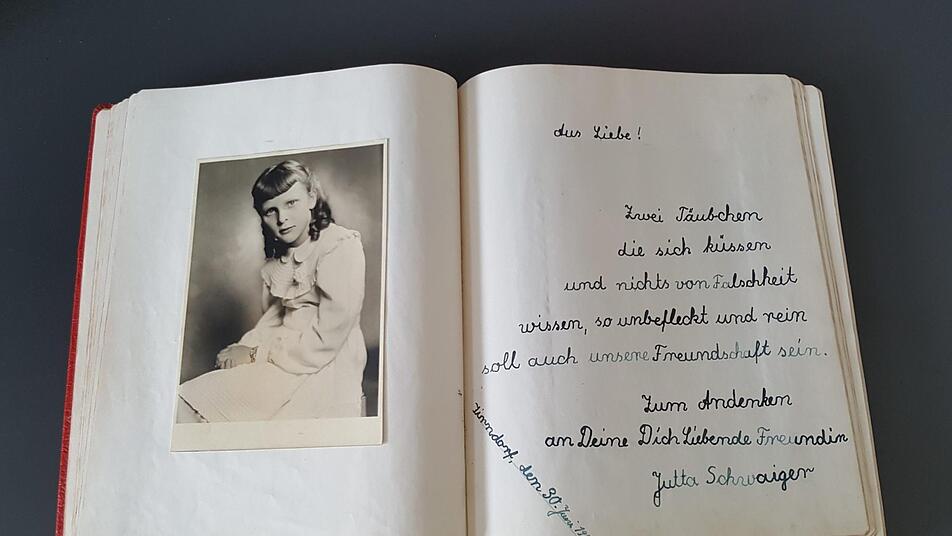 Aus Liebe!
Zwei Täubchen
die sich küssen
und nichts von Falschheit
wissen, so unbefleckt und rein
soll auch unsere Freundschaft sein.
Zum Andenken
an Deine Dich Liebende Freundin
Jutta Schwaiger
Zirndorf, dem 30. Juni